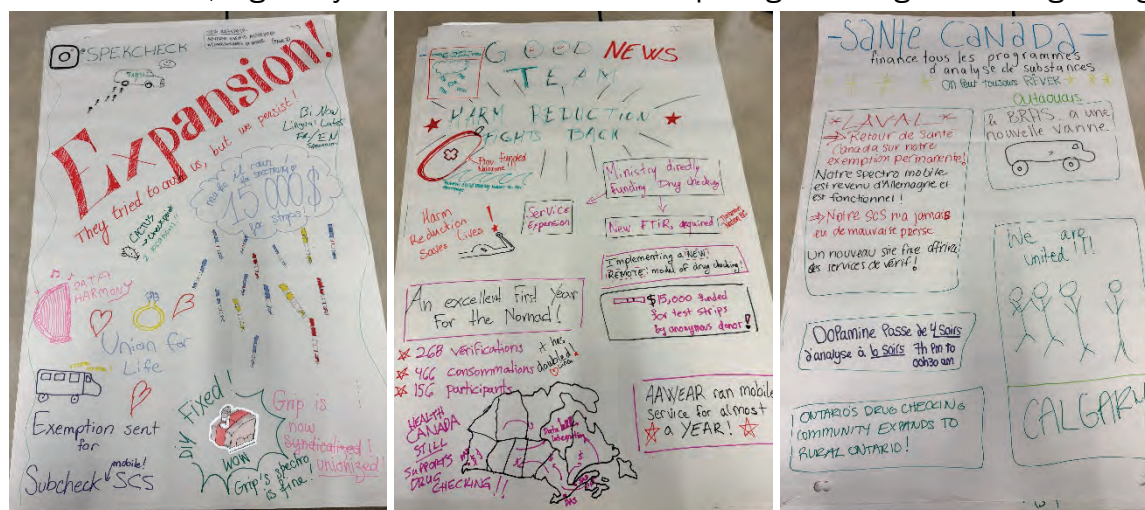 SPEKCHECK
Expansion!
They tried to crush us, but we persist!
Bi Now
Lingual Lates
FR/EN
make it rain
15 000 $
for strips!
CACTUS
DATA
HARMONY
Union for
Life
Exemption sent
for
mobile!
Subcheck SCS
DIY Fixed!
WOW
Grip's spectro
is fine!
Grip is
now
Syndicalized!
unionized!
GOOD NEWS
TEAM
HARM REDUCTION
FIGHTS BACK
Prov funded
Naloxone
Harm
Reduction
Saves Lives!
Ministry directly
Funding Drug checking
Service
Expansion
New FTIRs acquired!
Implementing a NEW!
REMOTE! model of drug checking!
$15,000 funded
for test strips
by anonymous donor!
An excellent First Year
For the Nomad!
268 verifications
466 consommations
156 participants
it has
doubled
HEALTH
CANADA
STILL
SUPPORTS
DRUG
CHECKING!!
AAWEAR ran mobile
service for almost
a YEAR!
-SANTÉ CANADA-
finance tous les programmes
d'analyse de substances
On peut toujours RÊVER
LAVAL
Retour de Santé
Canada sur notre
exemption permanente!
Notre spectro mobile
est revenu d'Allemagne et
est fonctionnel!
Notre SCS n'a jamais
eu de mauvaise presse
Un nouveau site fixe offrira
des services de vérif!
Outaouais
Le BRAS a une
nouvelle vanne
We are
united!!!
Dopamine passe de 4 soirs
d'analyse à 6 soirs
7h pm to
00h30 am
ONTARIO'S DRUG CHECKING
COMMUNITY EXPANDS TO
RURAL ONTARIO!
CALGARY